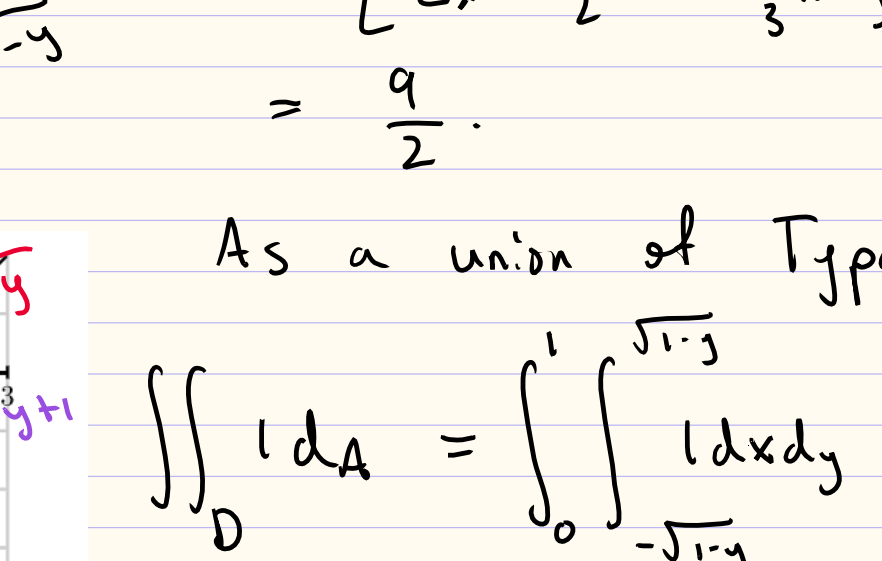 -y
= 9/2 .
As a union of Type
y
3
y+1
∬_D 1 dA = ∫_0^1 ∫_{-√(1-y)}^{√(1-y)} 1 dx dy